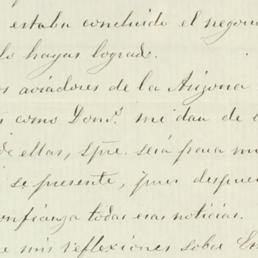 estaba concluido el negoci
lo hayas logrado.
os aviadores de la Arizona
s como Domº. me dan de
de ellas, spre. será para mi
se presente, pues despues
onfianza todas esas noticias.
e mis reflexiones sobre En